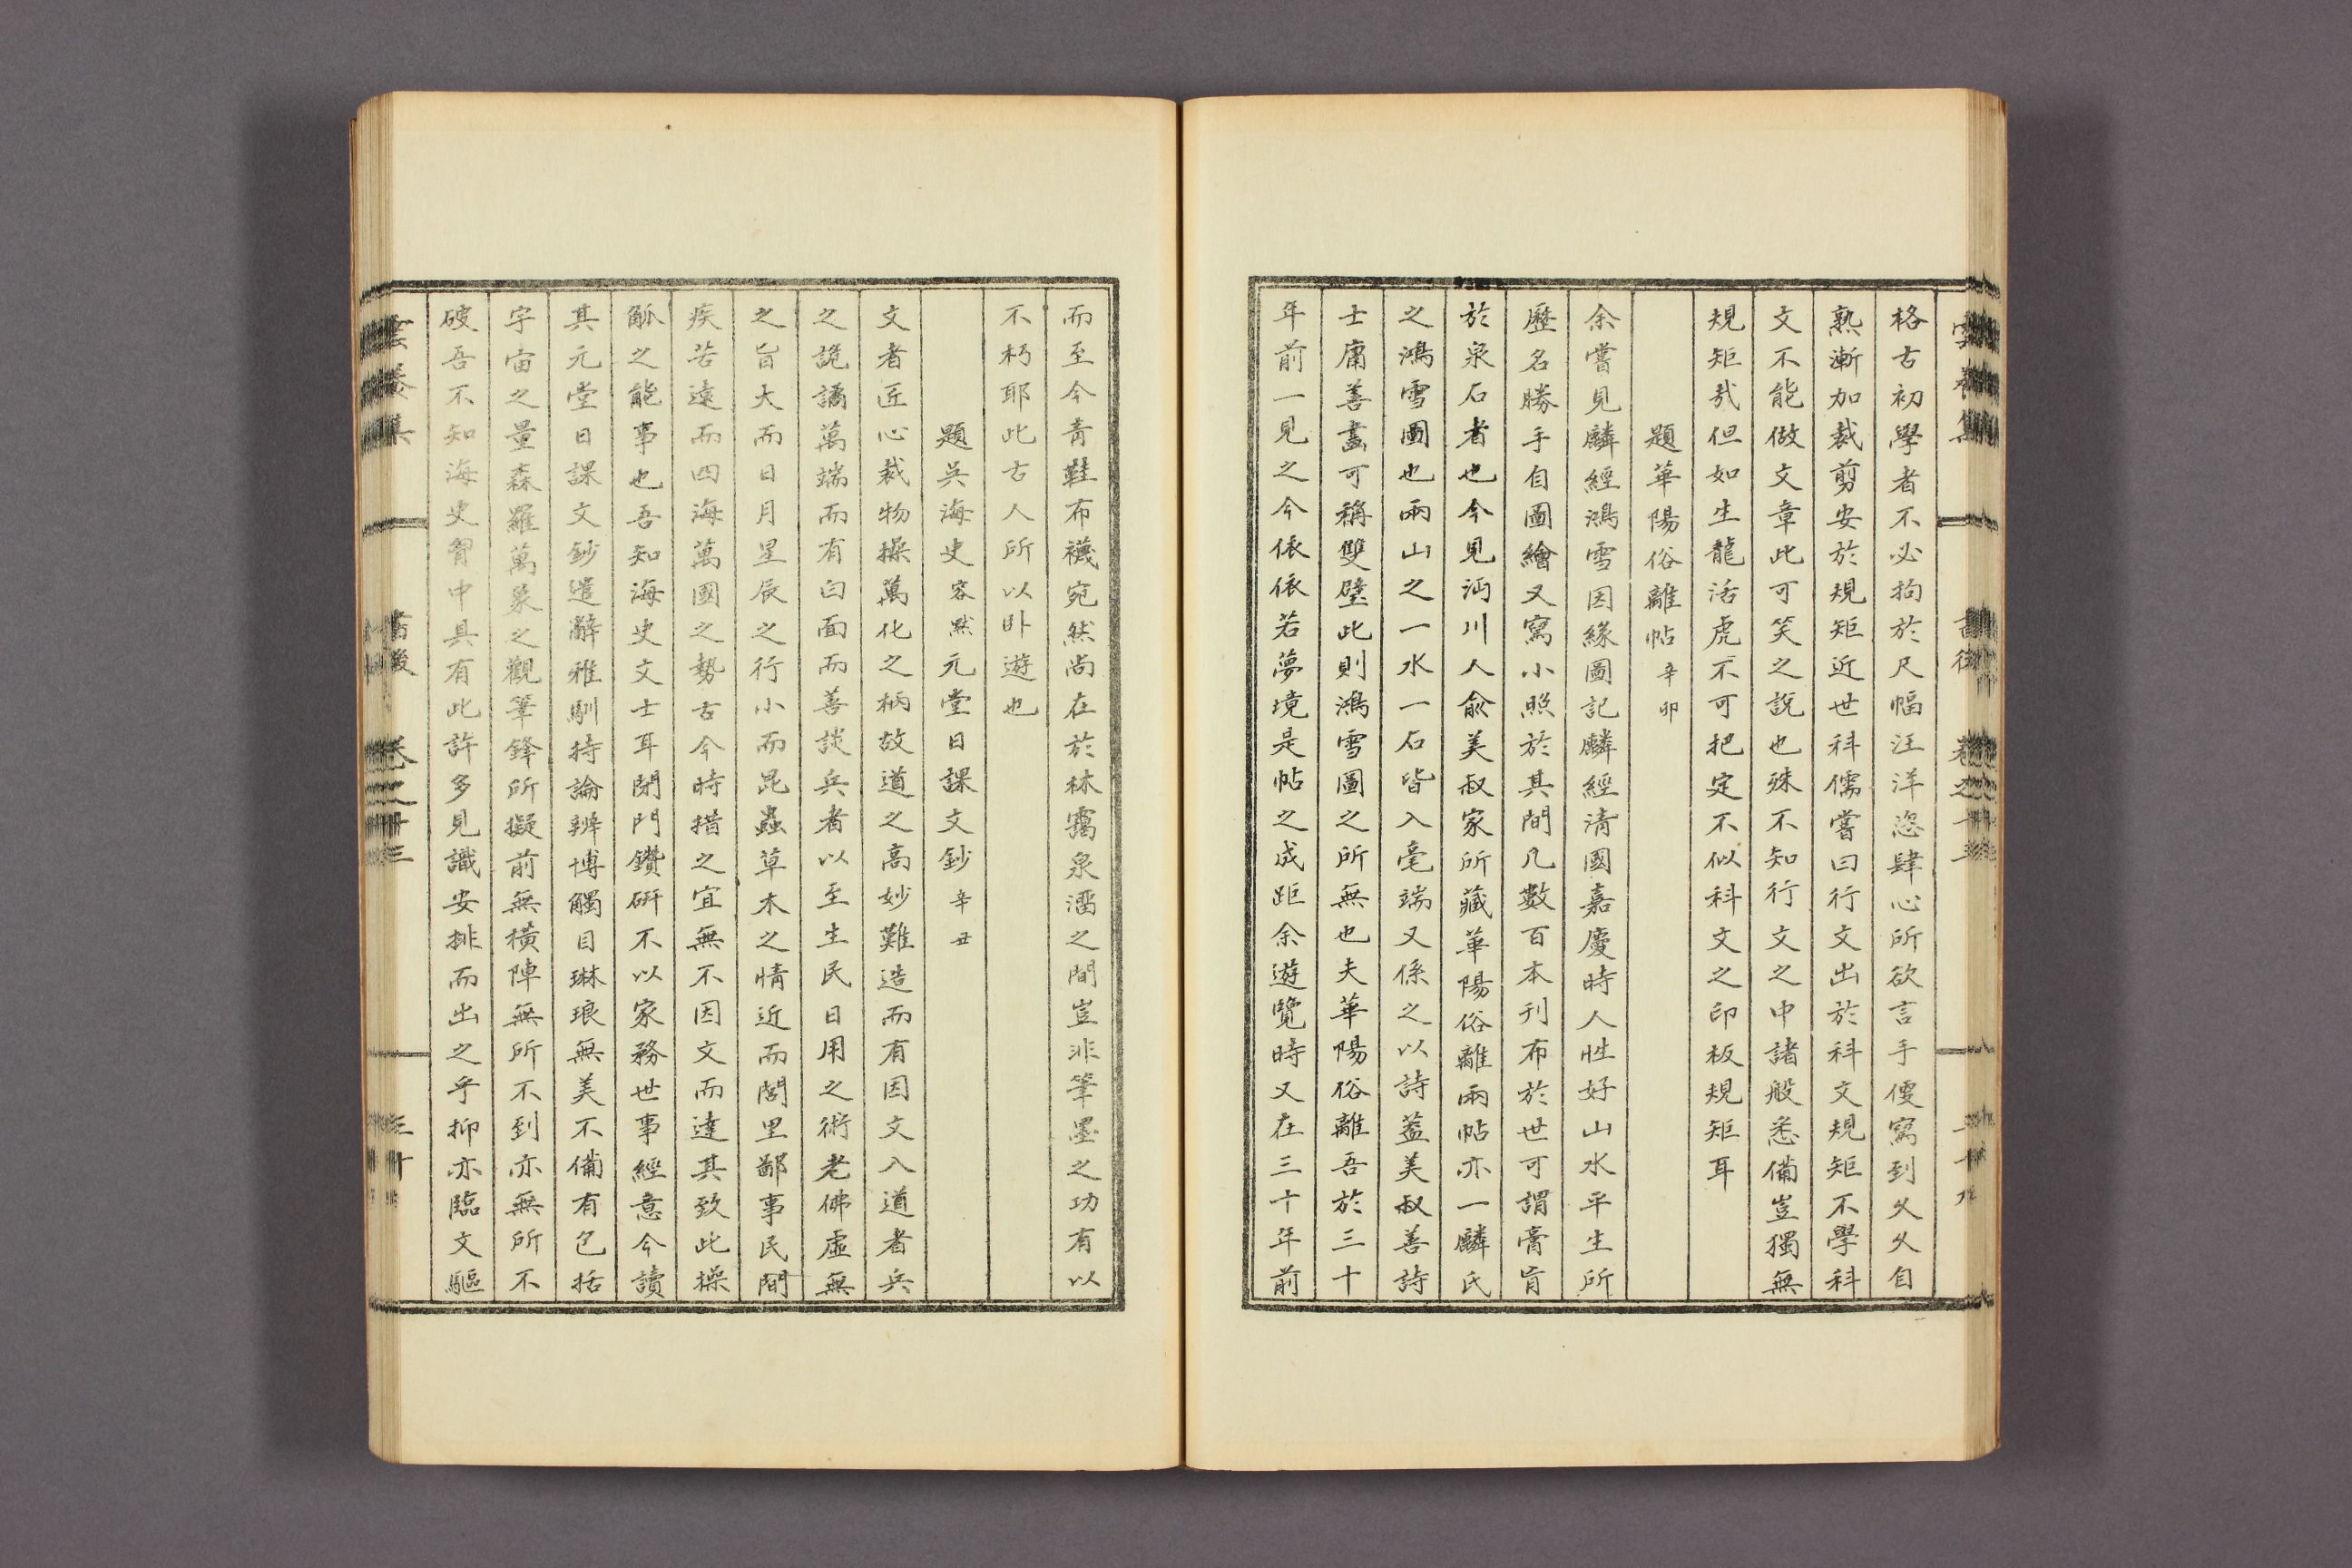 格古初學者不必拘於尺幅汪洋恣肆心所欲言手便寫到久久自
熟漸加裁剪安於規矩近世科儒嘗曰行文出於科文規矩不學科
文不能做文章此可笑之說也殊不知行文之中諸般悉備豈獨無
規矩哉但如生龍活虎不可把定不似科文之印板規矩耳
題華陽俗離帖辛卯
余嘗見麟經鴻雪因緣圖記麟經清國嘉慶時人性好山水平生所
歷名勝手自圖繪又寫小照於其間凡數百本刊布於世可謂膏肓
於泉石者也今見沔川人兪美叔家所藏華陽俗離兩帖亦一麟氏
之鴻雪圖也兩山之一水一石皆入毫端又係之以詩蓋美叔善詩
士庸善畵可稱雙璧此則鴻雪圖之所無也夫華陽俗離吾於三十
年前一見之今依依若夢境是帖之成距余遊覽時又在三十年前
而至今靑鞋布襪宛然尙在於林靄泉澑之間豈非筆墨之功有以
不朽耶此古人所以卧遊也
題吳海史容黙元堂日課文鈔辛丑
文者匠心裁物操萬化之柄故道之高妙難造而有因文入道者兵
之詭譎萬端而有白面而善談兵者以至生民日用之術老佛虛無
之旨大而日月星辰之行小而昆蟲草木之情近而閭里鄙事民間
疾苦遠而四海萬國之勢古今時措之宜無不因文而達其致此操
觚之能事也吾知海史文士耳閉門鑽硏不以家務世事經意今讀
其元堂日課文鈔遣辭雅馴持論辨博觸目琳琅無美不備有包括
宇宙之量森羅萬象之觀筆鋒所擬前無橫陣無所不到亦無所不
破吾不知海史胷中具有此許多見識安排而出之乎抑亦臨文驅